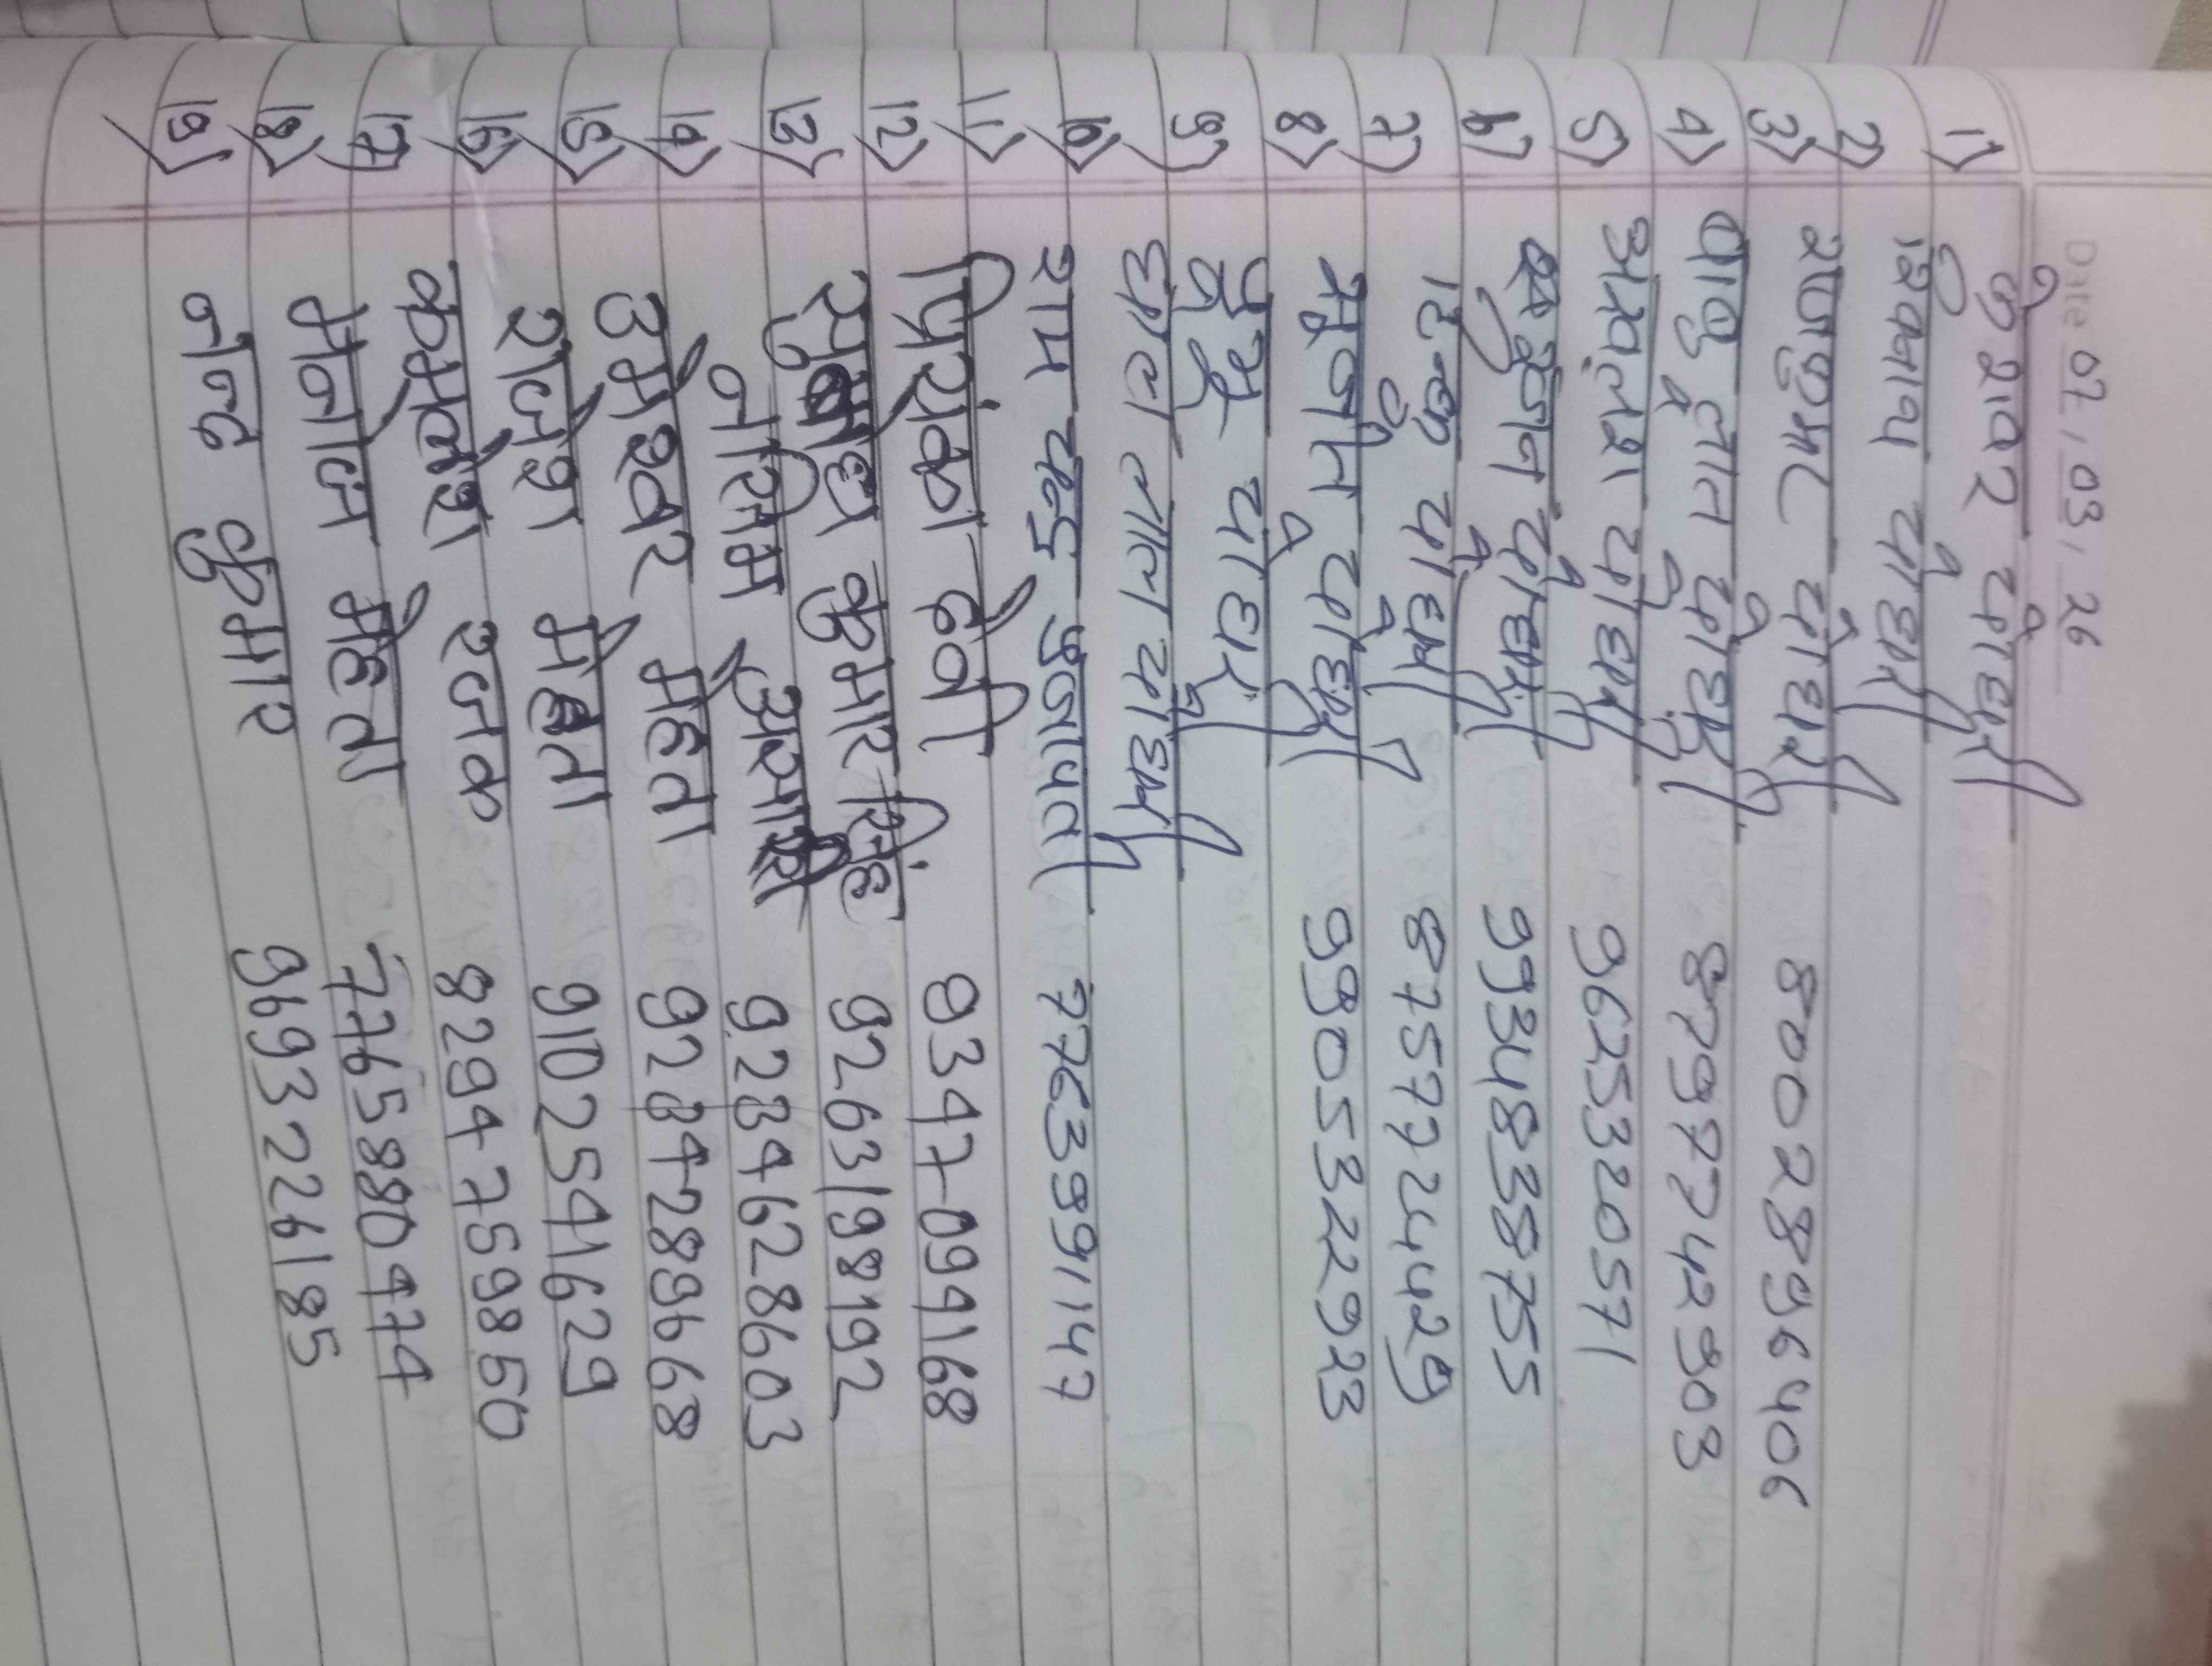 Date 07, 03, 26
1) केशवर चौधरी
2) शिवनाथ चौधरी
3) राजकुमार चौधरी 8002896406
4) बाबु लाल चौधरी 8797742903
5) अखलेश चौधरी 9625320571
6) चौधरी 9934838755
7) चौधरी 8757724429
8) चौधरी 9905322923
9) चौधरी
10) लाल चौधरी
राम चन्द्र प्रजापती 7763989147
11) प्रियंका देवी 9347-094168
12) सुभाष कुमार सिंह 9263198192
13) नासिम अंसारी 9234628603
14) उमेश्वर मेहता 9284289668
15) राजेश मेहता 9102541629
16) कमलेश रजक 8294759850
17) मनोज मेहता 7765880474
18) नन्द कुमार 9693226185
19)